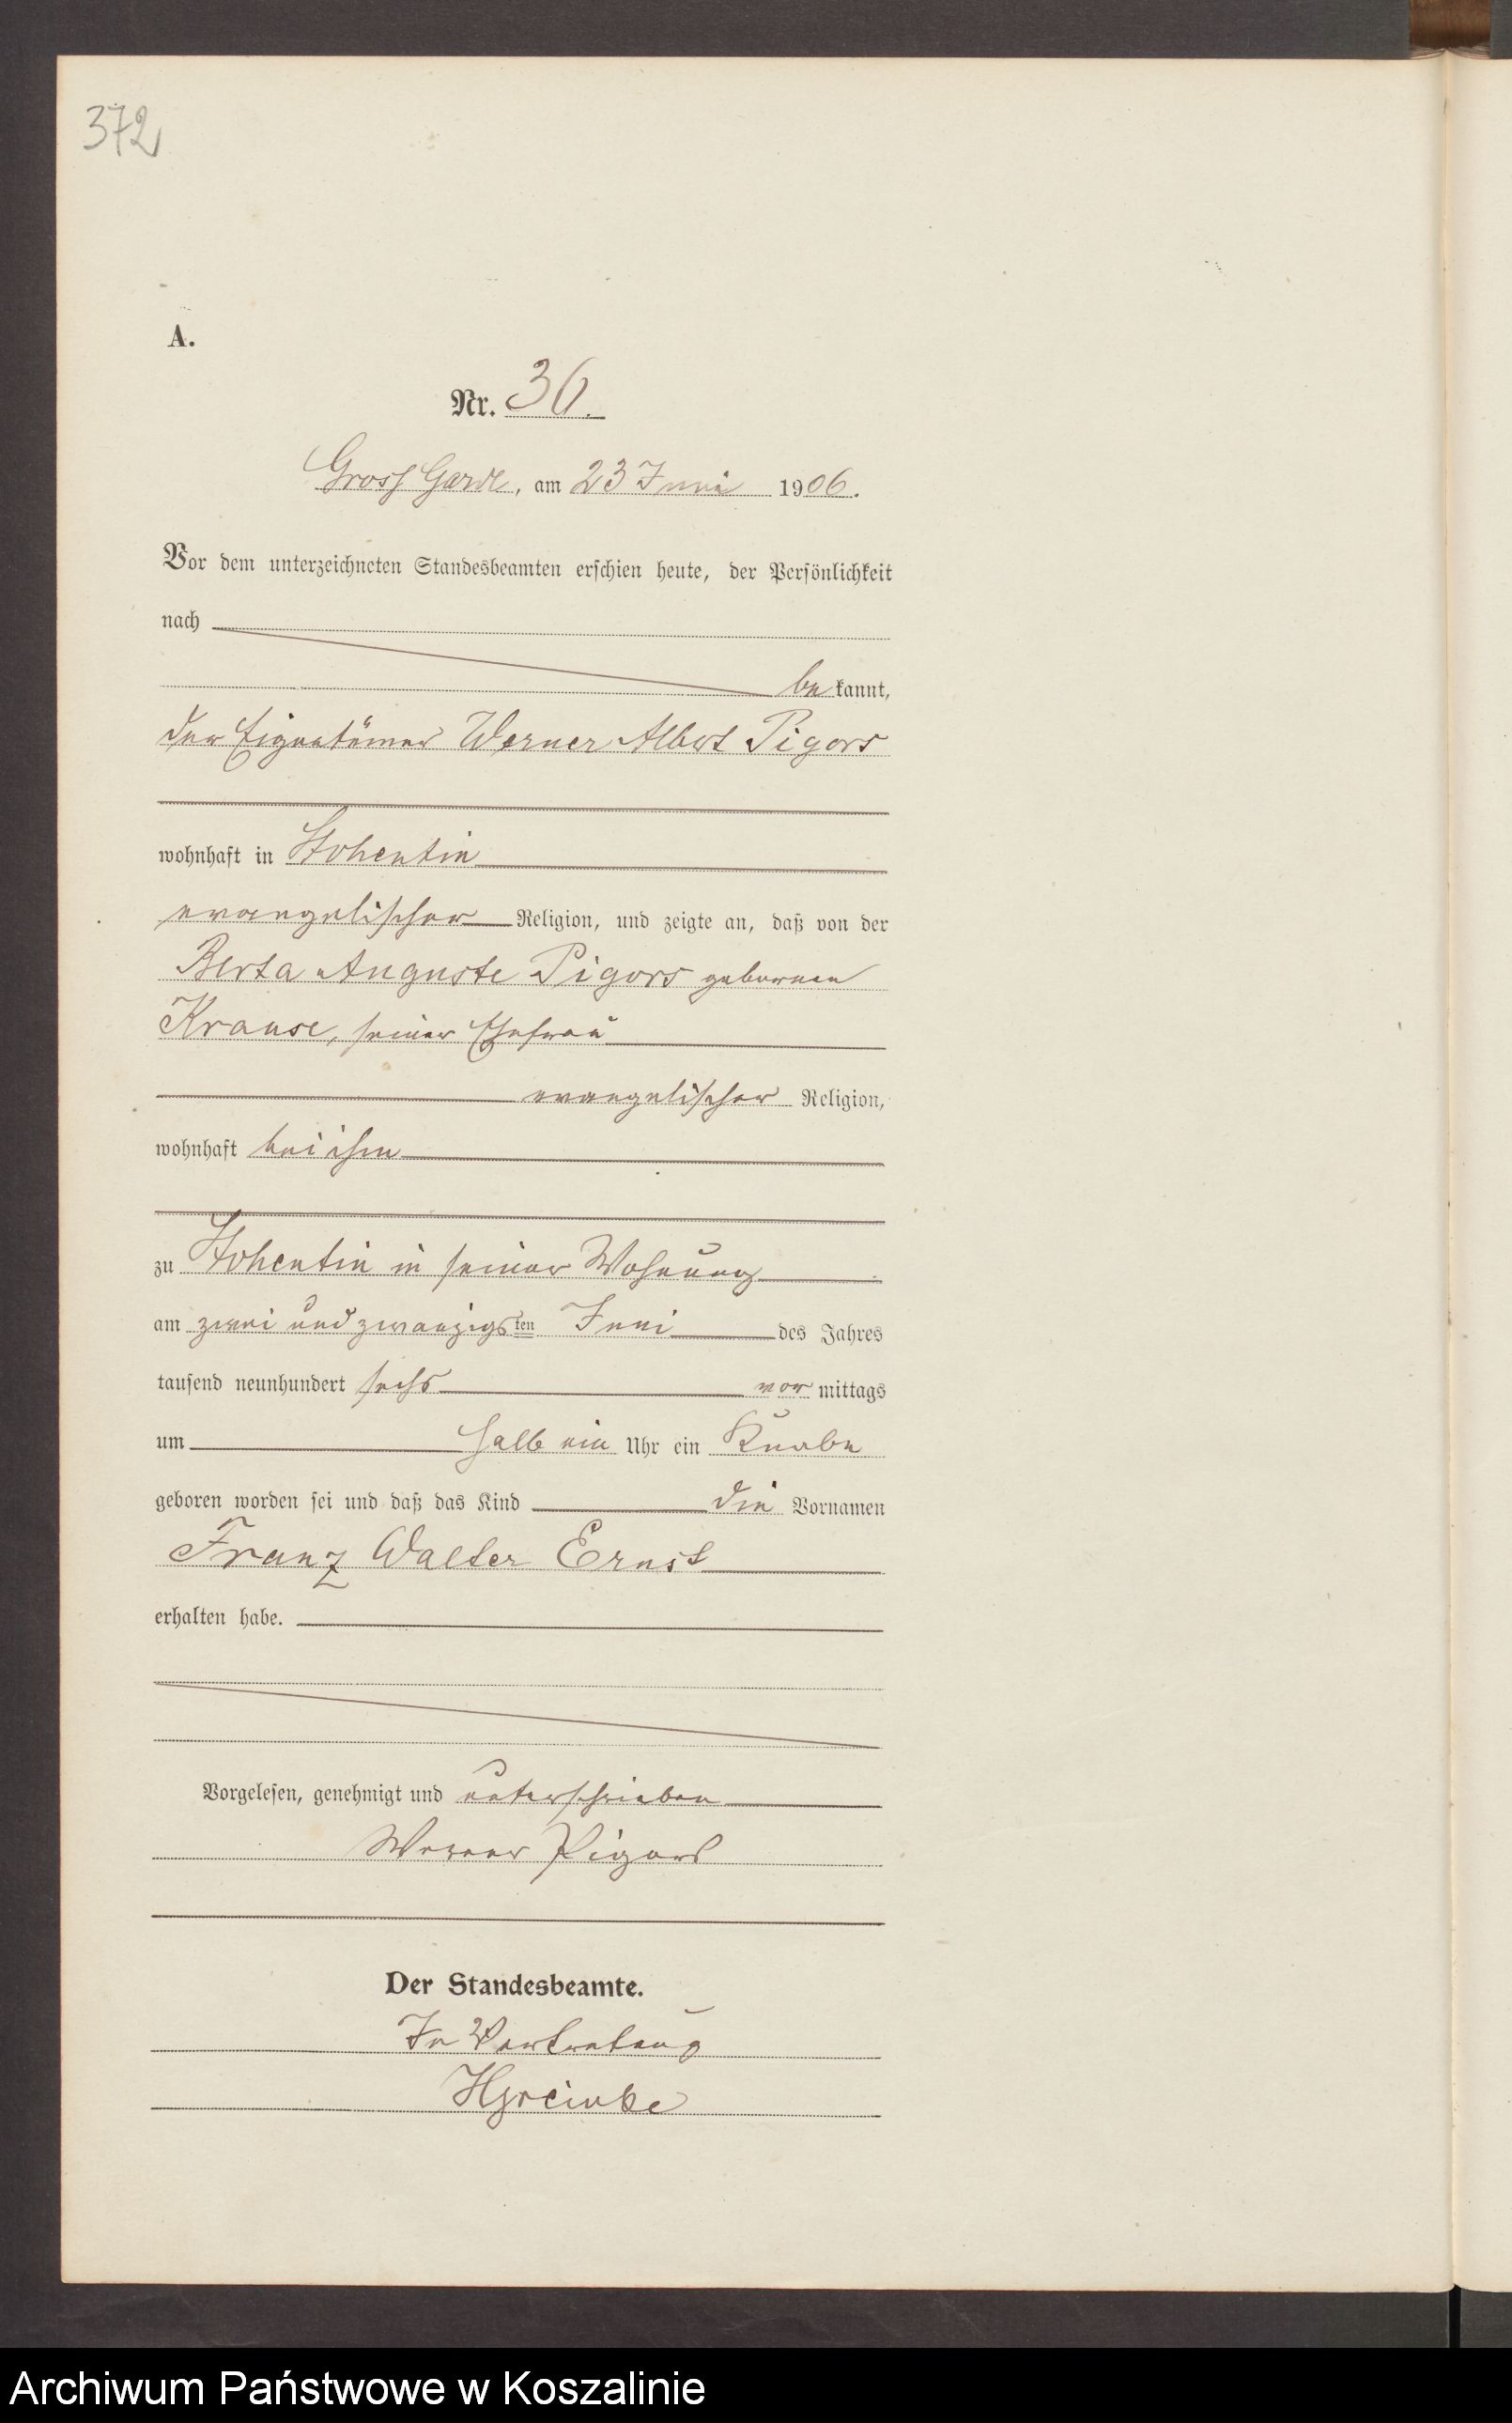 372
A.
Nr. 36.
Gross Garde, am 23 Juni 1906.
Vor dem unterzeichneten Standesbeamten erschien heute, der Persönlichkeit
nach
bekannt,
der Eigentümer Werner Albert Pigors
wohnhaft in Stohentin
evangelischer Religion, und zeigte an, daß von der
Berta Auguste Pigors geborenen
Krause, seiner Ehefrau
evangelischer Religion,
wohnhaft bei ihm
zu Stohentin in seiner Wohnung
am zwei und zwanzigsten Juni des Jahres
tausend neunhundert sechs vor mittags
um halb ein Uhr ein Knabe
geboren worden sei und daß das Kind die Vornamen
Franz Walter Ernst
erhalten habe.
Vorgelesen, genehmigt und unterschrieben
Werner Pigors
Der Standesbeamte.
In Vertretung
Archiwum Państwowe w Koszalinie